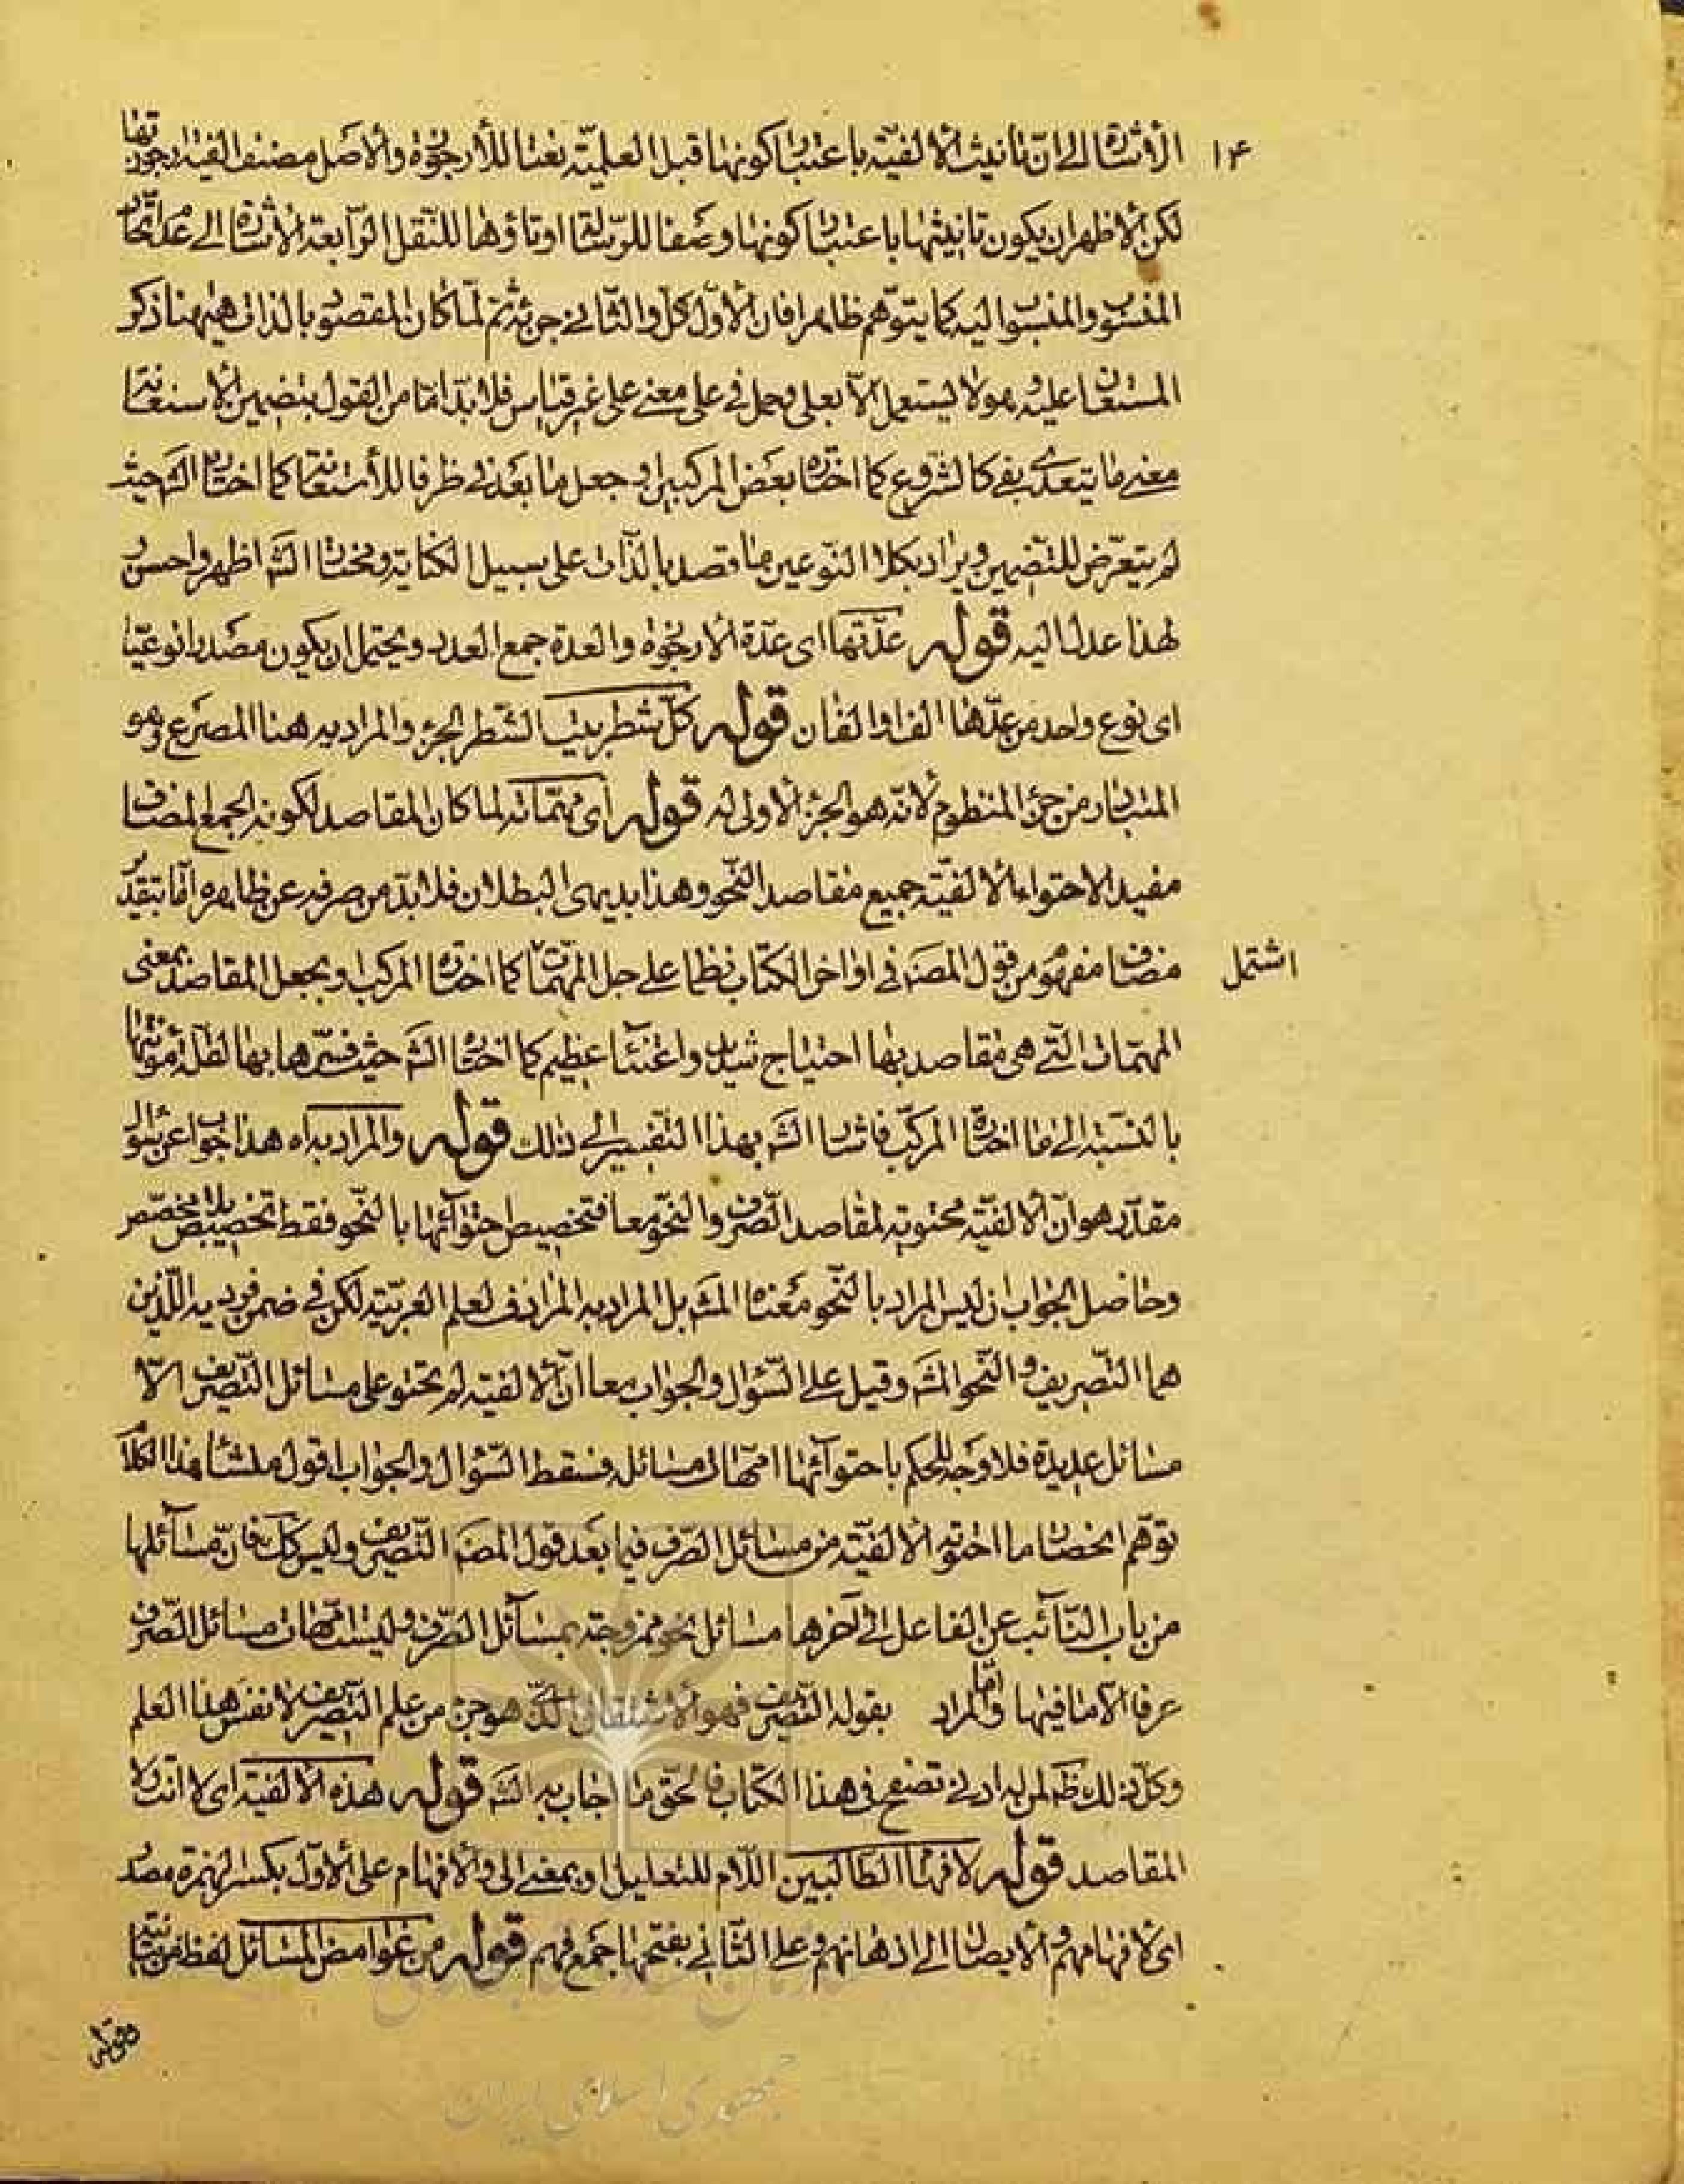 ١۴
الأشارة الى ان تأنيث الألفية باعتبار كونها قبل العلمية نعتا للأرجوزة والأصل مصنف الفية ارجوزتها
لكن الأظهر ان يكون تانيثها باعتبار كونها وصفا للرسالة او تاؤها للنقل الرابعة الأشارة الى عدم اتحاد
المنسوب والمنسوب اليه كما يتوهم ظاهرا فان الأول كل والثاني جزئه ثم لما كان المقصود بالذات هيهنا ذكر
المستعان عليه وهو لا يستعمل الا بعلى وحمل في على معنى على غير قياس فلا بد اما من القول بتضمين الأستعانة
معنى ما يتعدى بفي كالشروع كما اختاره بعض المركبين او جعل ما بعد في ظرفا للأستعانة كما اختاره الشه حيث
لم يتعرض للتضمين ويراد بكلا النوعين ما قصد بالذات على سبيل الكناية ومختار الشه اظهر واحسن
لهذا عدل اليه قوله عدتها اى عدة الأرجوزة والعدة جمع العدد ويحتمل ان يكون مصدرا نوعيا
اى نوع واحد من عدها الف او الفان قوله كل شطر بيت الشطر الجزء والمراد به هنا المصرع وهو
المتبادر من جزء المنظوم لانه هو الجزء الأولى له قوله اى مهماته لما كان المقاصد لكونه الجمع المضاف
مفيد الاحتواء الألفية جميع مقاصد النحو وهذا بديهى البطلان فلا بد من صرفه عن ظاهره اما بتقدير
مضاف مفهوم من قول المصه فى اواخر الكتاب نظما على جل المهمات كما اختاره المركب او بجعل المقاصد بمعنى
اشتمل
المهمات التى هى مقاصد بها احتياج شديد واعتناء عظيم كما اختاره الشه حيث فسرها بها لقلة مؤنتها
بالنسبة الى ما اختاره المركب فاشار الشه بهذا التفسير الى ذلك قوله والمراد به اه هذا جواب عن سؤال
مقدر هو ان الألفية محتوية لمقاصد الصرف والنحو معا فتخصيص احتوائها بالنحو فقط تخصيص بلا مخصص
وحاصل الجواب ان ليس المراد بالنحو معناه المشه بل المراد به المرادف لعلم العربية لكن فى ضمن فرديه اللذين
هما التصريف والنحو المشه وقيل على السؤال والجواب معا ان الألفية لم تحتو على مسائل التصريف الا
مسائل عديدة فلا وجه للحكم باحتوائها امهات مسائله فسقط السؤال والجواب اقول منشأ هذا الكلام
توهم انحصار ما احتوته الألفية من مسائل الصرف فيما بعد قول المصه التصريف وليس كك فان مسائلها
من باب النائب عن الفاعل الى آخرها مسائل نحو ممزوجة بمسائل الصرف وليست امهات مسائل الصرف
عرفا الا ما فيها واما المراد بقوله التصريف فهو الأشتقاق الذى هو جزء من علم التصريف لا نفس هذا العلم
وكل ذلك ظه لمن له ادنى تصفح فى هذا الكتاب فالحق ما اجاب به الشه قوله هذه الألفية اى لا انت ولا
المقاصد قوله لافهام الطالبين اللام للتعليل او بمعنى الى والأفهام على الأول بكسر الهمزة مصدر
اى لافهامهم والأيصال الى اذهانهم وعلى الثانى بفتحها جمع فهم قوله من غوامض المسائل لفظ من
وقوله
جمهوری اسلامی ایران